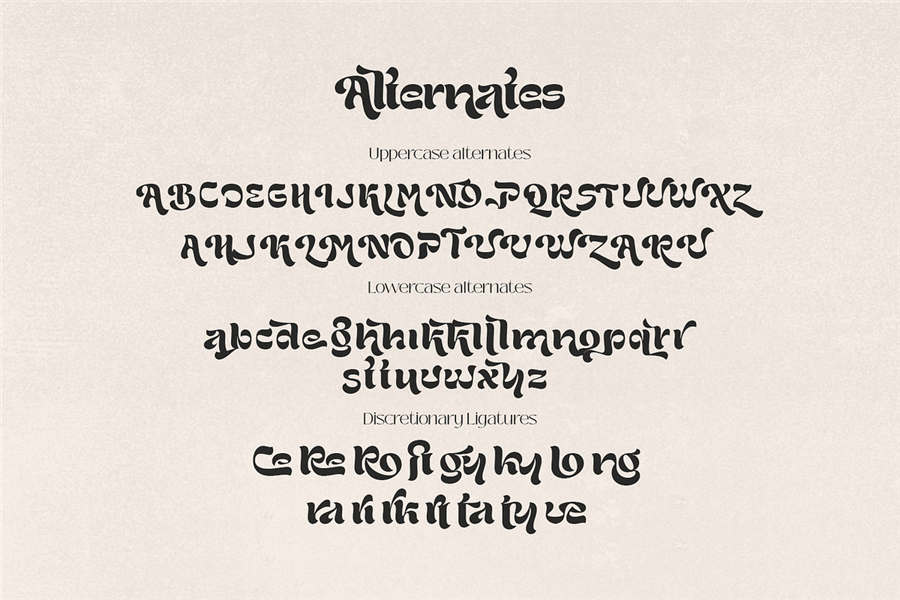 Alternates
Uppercase alternates
ABCDEGHIJKLMNO PQRSTUUWXZ
AHJKLMNOPTUVWZARU
Lowercase alternates
abcdeghhıkkllmnopqrr
sttyuvwxyz
Discretionary Ligatures
Ce Re Ro fi gy ky lo ng
ra ri rk rt ta ty ve